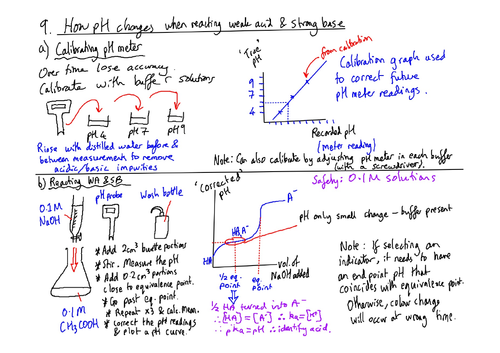 9. How pH changes when reacting weak acid & strong base
a) Calibrating pH meter
Over time lose accuracy.
Calibrate with buffer solutions
pH4 pH7 pH9
Rinse with distilled water before &
between measurement to remove
acidic/basic impurities
'True'
pH
9
7
4
from calibration
Recorded pH
(meter reading)
Calibration graph used
to correct future
pH meter readings.
Note: Can also calibrate by adjusting pH meter in each buffer
(with a screwdriver)
b) Reacting WA & SB
Safety: 0.1M solutions
0.1M
NaOH
pH probe
Wash bottle
* Add 2cm³ burette portions
* Stir. Measure the pH
* Add 0.2cm³ portions
close to equivalence point.
* Go past eq. point.
* Repeat x3 & calc. mean.
* Correct the pH readings
& plot a pH curve.
0.1M
CH₃COOH
'Corrected'
pH
HA
HA
A⁻
A⁻
vol. of
NaOH added
½ eq.
point
eq.
point
½ HA turned into A⁻
∴ [HA] = [A⁻] ∴ ka = [H⁺]
∴ pka = pH ∴ identify acid.
pH only small change - buffer present
Note: If selecting an
indicator, it needs to have
an end point pH that
coincides with equivalence point.
Otherwise, colour change
will occur at wrong time.